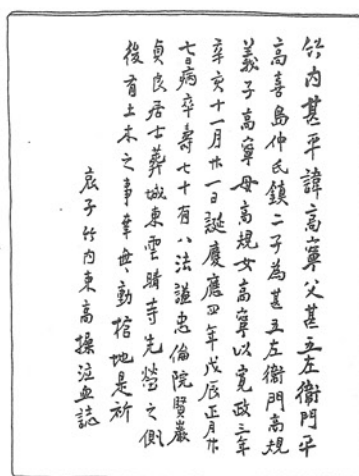 竹内甚平諱高寧父甚五左衛門平
高喜島仲氏鎮二子為甚五左衛門高規
義子高寧母高規女高寧以寛政三年
辛亥十一月廿一日誕慶應四年戊辰正月廿
七日病卒寿七十有八法謙忠倫院賢巌
貞良居士葬城東雲晴寺先塋之側
後有土木之事幸毋動揺地是祈
哀子竹内東高操泣血誌